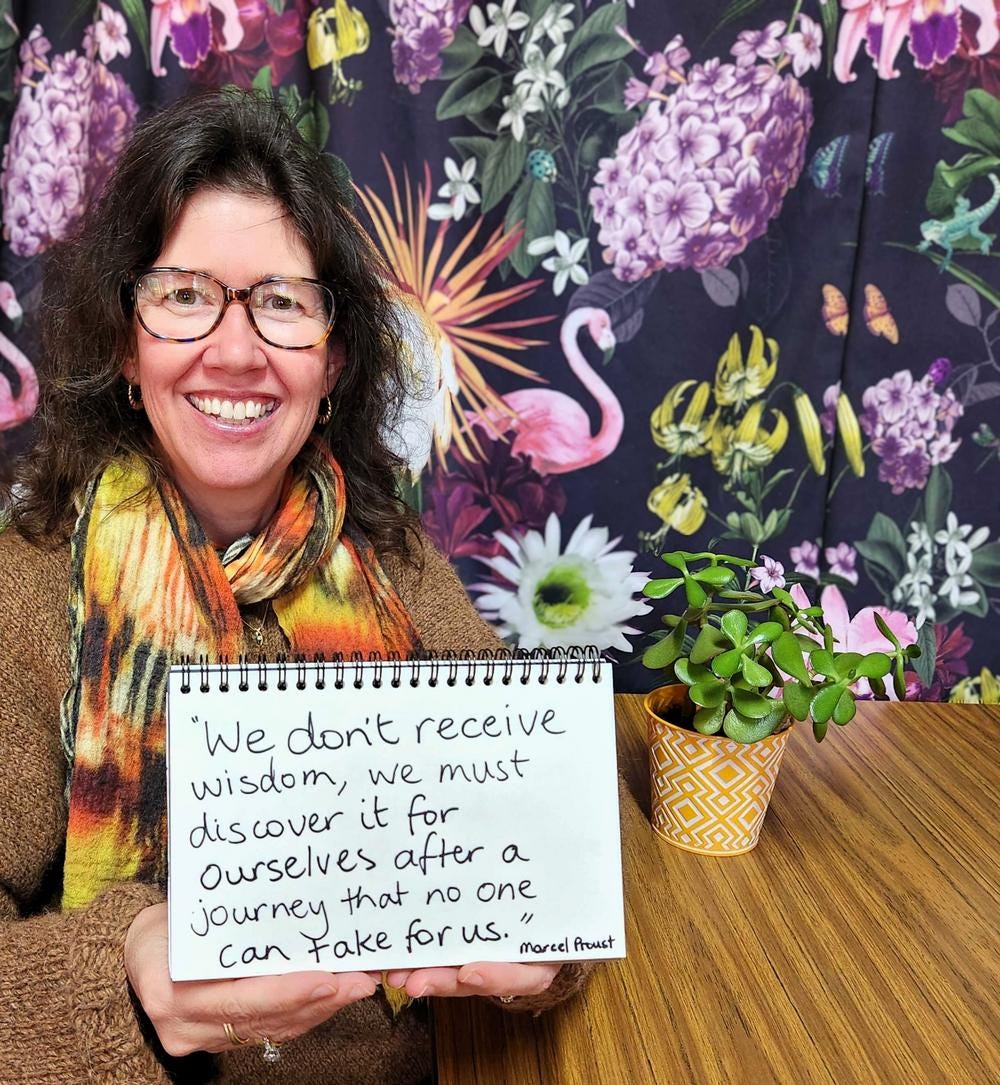 "We don't receive
wisdom, we must
discover it for
ourselves after a
journey that no one
can take for us."
Marcel Proust